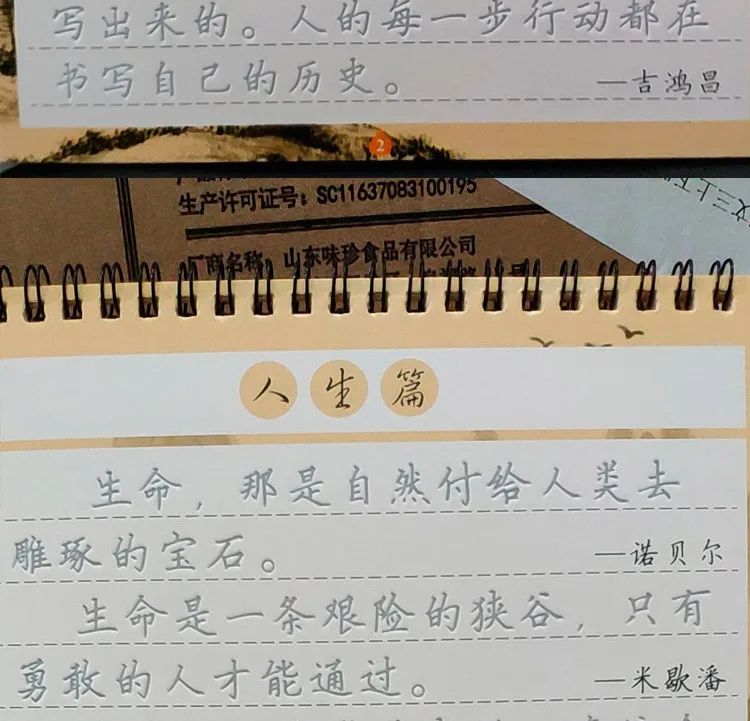 写出来的。人的每一步行动都在
书写自己的历史。
—吉鸿昌
2
生产许可证号：SC11637083100195
厂商名称：山东味珍食品有限公司
人生篇
生命，那是自然付给人类去
雕琢的宝石。
—诺贝尔
生命是一条艰险的狭谷，只有
勇敢的人才能通过。
—米歇潘